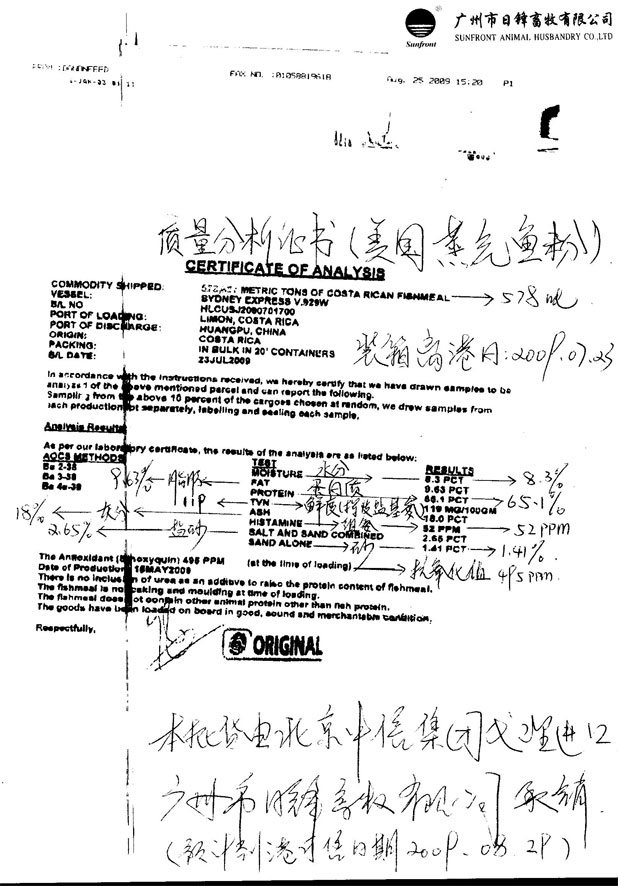 广州市日锋畜牧有限公司
Sunfront
SUNFRONT ANIMAL HUSBANDRY CO.,LTD
FAX NO. :01058819618 Aug. 25 2009 15:20 P1
质量分析证书(美国蒸汽鱼粉)
CERTIFICATE OF ANALYSIS
COMMODITY SHIPPED: METRIC TONS OF COSTA RICAN FISHMEAL → 578
VESSEL: SYDNEY EXPRESS V.929W
B/L NO HLCUSJ2090701700
PORT OF LOADING: LIMON, COSTA RICA
PORT OF DISCHARGE: HUANGPU, CHINA
ORIGIN: COSTA RICA
PACKING: IN BULK IN 20' CONTAINERS
B/L DATE: 23JUL2009
装箱离港日:2009.07.23
In accordance with the instructions received, we hereby certify that we have drawn samples to be
analyzed of the above mentioned parcel and can report the following.
Sampling from the above 10 percent of the cargoes chosen at random, we drew samples from
each production lot separately, labelling and sealing each sample.
Analysis Results
As per our laboratory certificate, the results of the analysis are as listed below:
AOCS METHODS TEST RESULTS
Ba 2-38 MOISTURE 水分 8.3 PCT → 8.3%
Ba 3-38 9.63% ← 脂肪 FAT 9.63 PCT
Ba 4a-38 PROTEIN 蛋白质 65.1 PCT → 65.1%
119 TVN 鲜度(挥发盐基氮) 119 MG/100GM
18% ← 灰分 ASH 18.0 PCT
HISTAMINE 组胺 52 PPM → 52PPM
2.65% ← 盐砂 SALT AND SAND COMBINED 2.65 PCT
SAND ALONE 砂 1.41 PCT → 1.41%
The Antioxidant (Ethoxyquin) 495 PPM (at the time of loading) → 抗氧化值 495ppm
Date of Production: 15MAY2009
There is no inclusion of urea as an additive to raise the protein content of fishmeal.
The fishmeal is no caking and moulding at time of loading.
The fishmeal does not contain other animal protein other than fish protein.
The goods have been loaded on board in good, sound and merchantable condition.
Respectfully,
ORIGINAL
本批货由北京中信集团代理进口
广州市日锋畜牧有限公司承销
(预计到港时间日期2009.08.29)